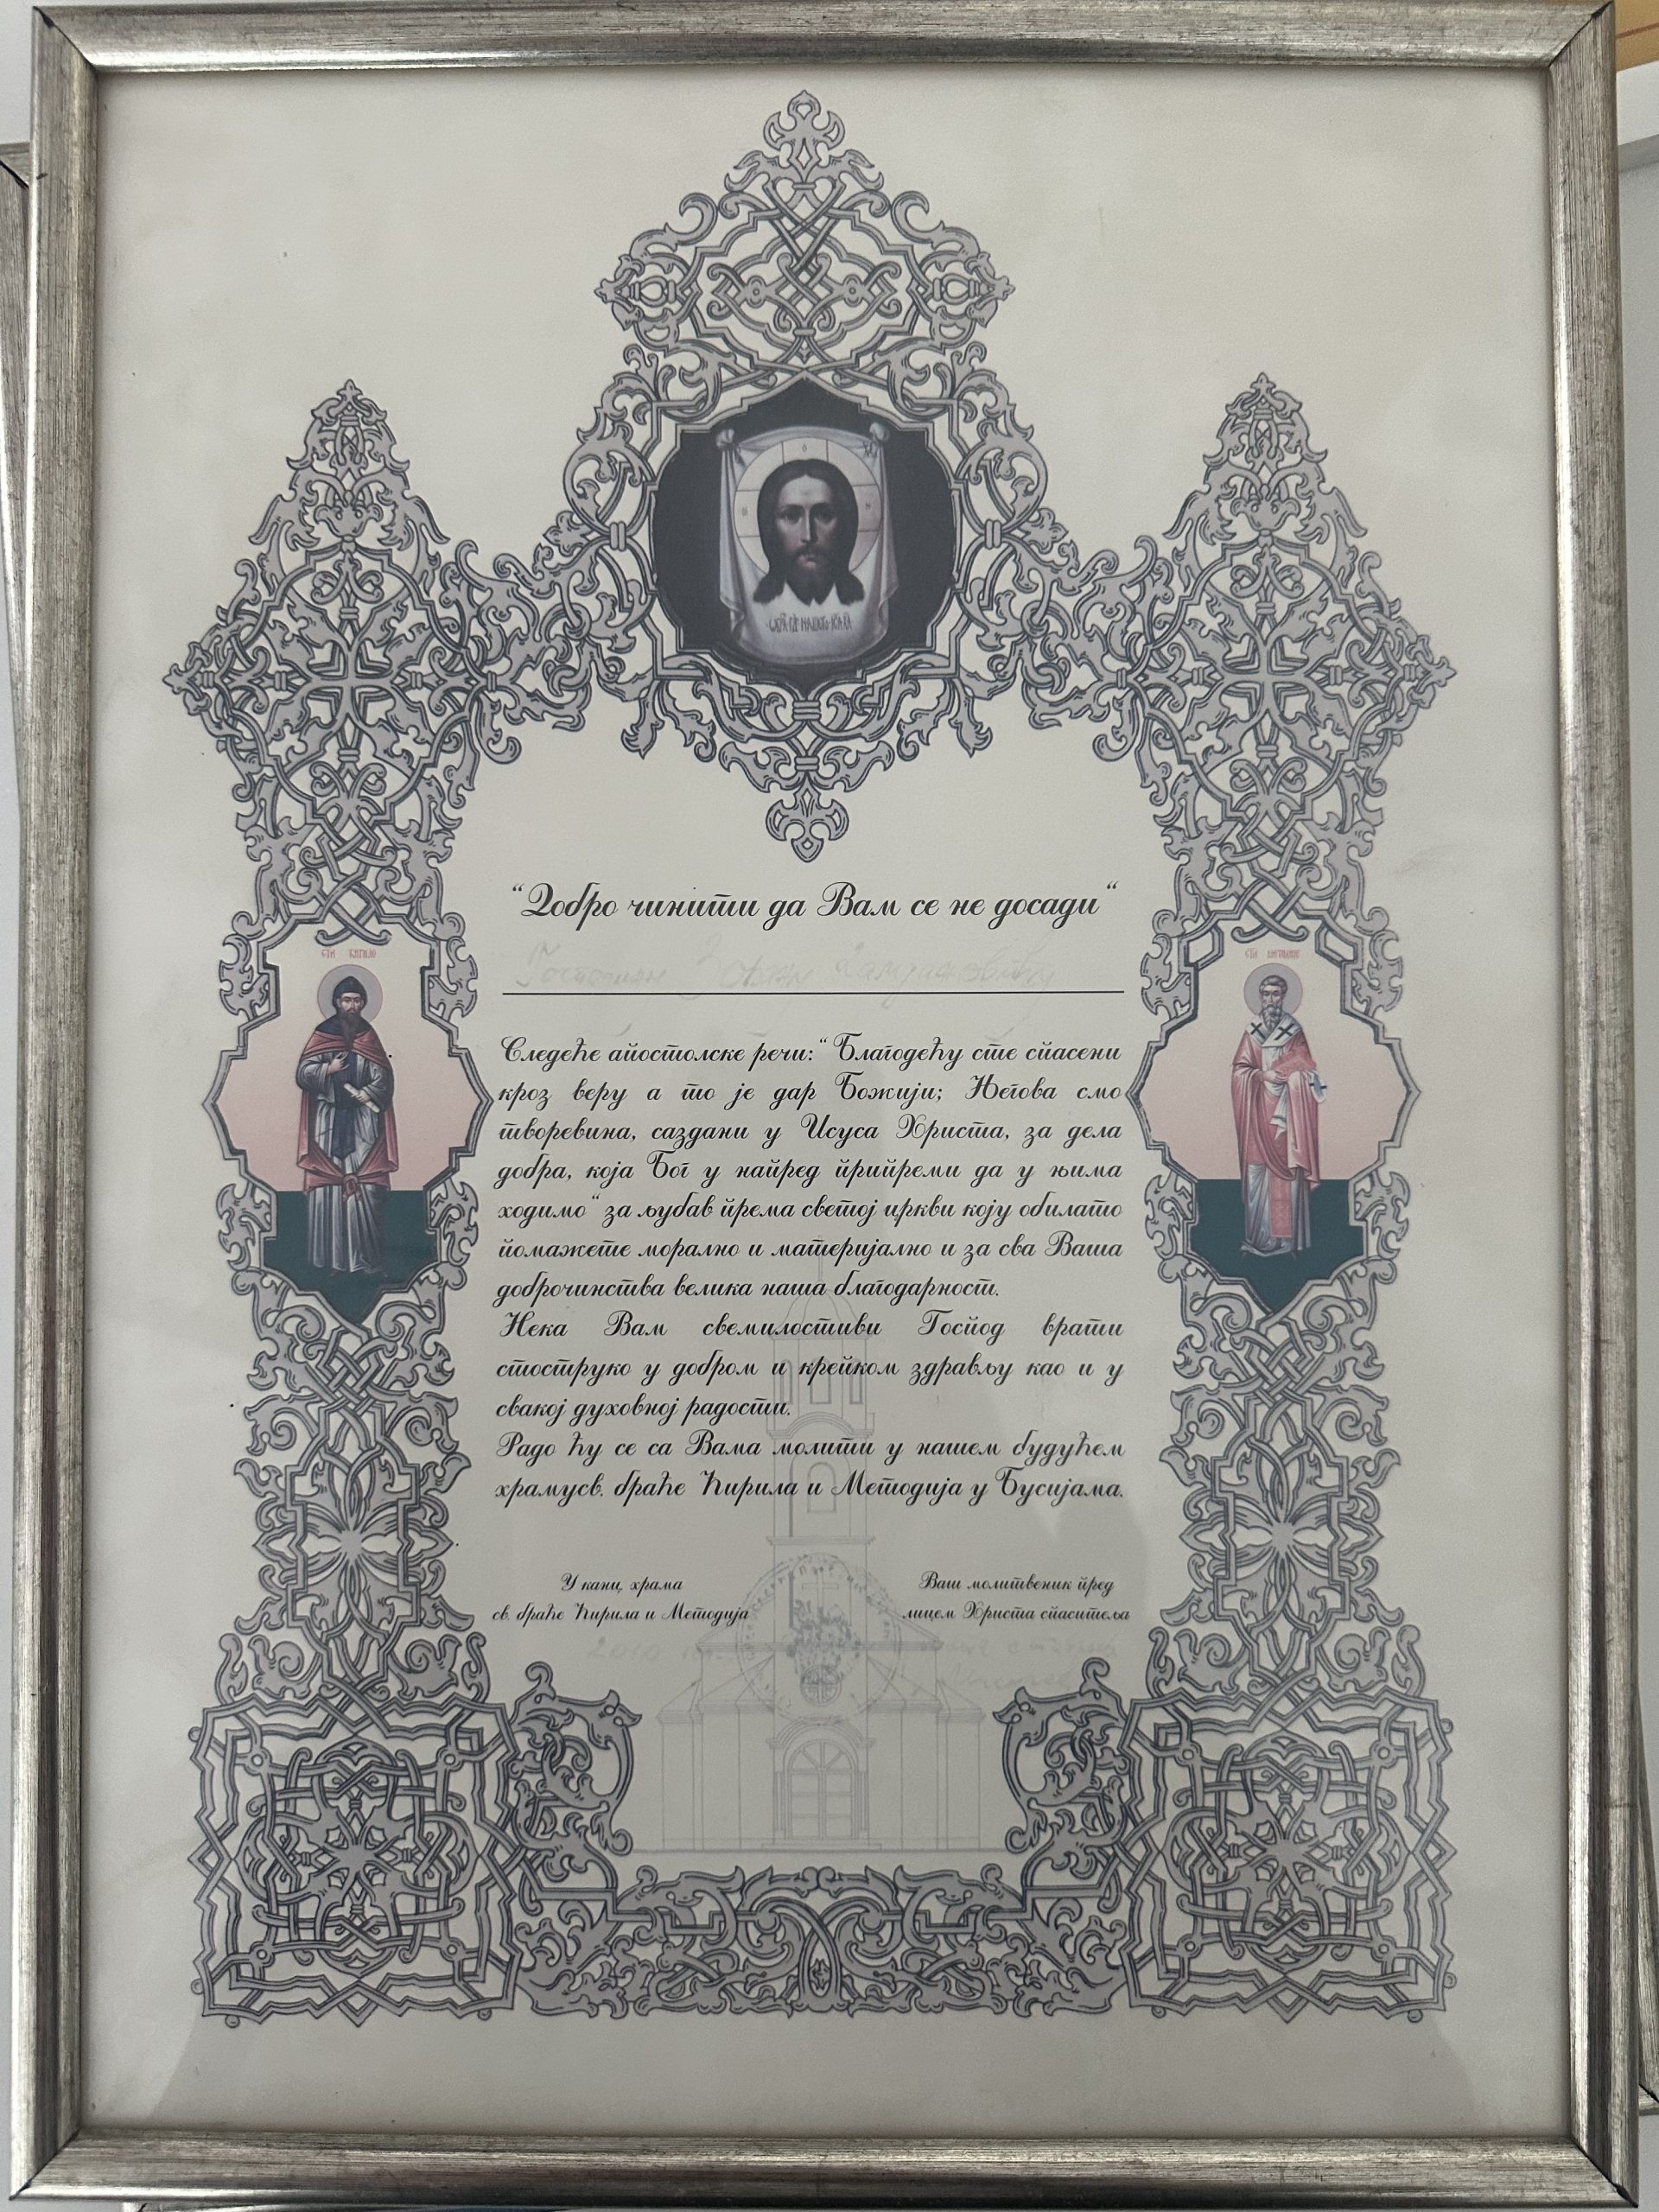 “Добро чинити да Вам се не досади“
Следеће апостолске речи:“ Благодећу сте спасени
кроз веру а то је дар Божији; Његова смо
творевина, саздани у Исуса Христа, за дела
добра, која Бог у напред припреми да у њима
ходимо“ за љубав према светој цркви коју обилато
помажете морално и материјално и за сва Ваша
доброчинства велика наша благодарност.
Нека Вам свемилостиви Господ врати
стоструко у добром и крепком здрављу као и у
свакој духовној радости.
Радо ћу се са Вама молити у нашем будућем
храмусв. браће Ћирила и Методија у Бусијама.
У канц. храма
св. браће Ћирила и Методија
Ваш молитвеник пред
лицем Христа спаситеља
2010